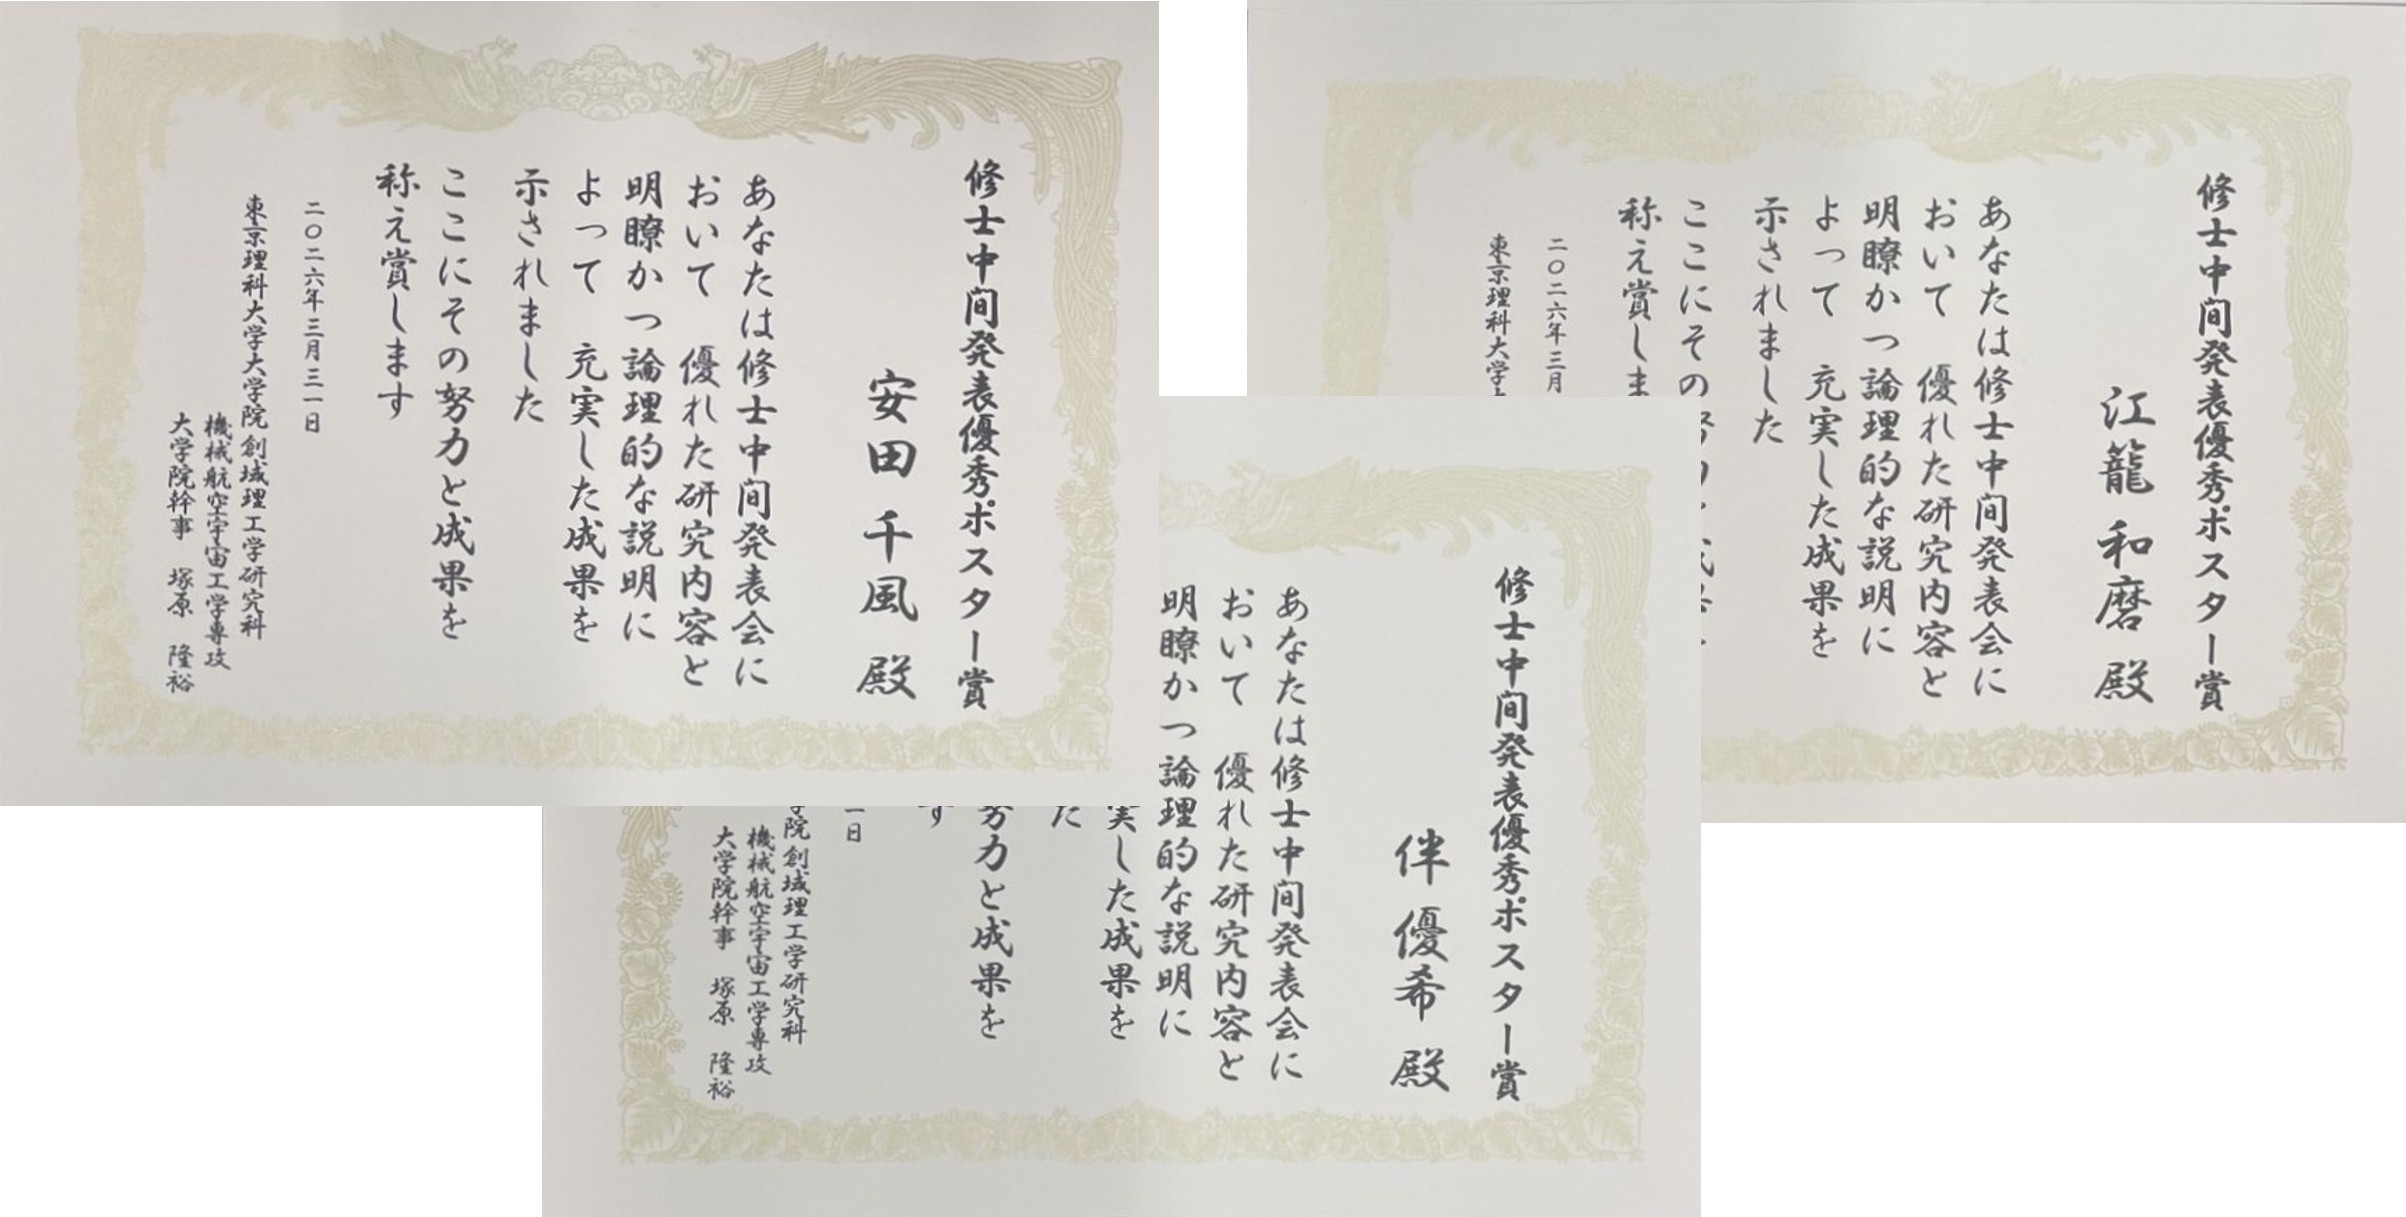 修士中間発表優秀ポスター賞
安田 千風 殿
あなたは修士中間発表会に
おいて 優れた研究内容と
明瞭かつ論理的な説明に
よって 充実した成果を
示されました
ここにその努力と成果を
称え賞します
二〇二六年三月三一日
東京理科大学大学院 創域理工学研究科
機械航空宇宙工学専攻
大学院幹事 塚原 隆裕
修士中間発表優秀ポスター賞
江籠 和磨 殿
あなたは修士中間発表会に
おいて 優れた研究内容と
明瞭かつ論理的な説明に
よって 充実した成果を
示されました
ここにその
称え賞しま
二〇二六年三月
東京理科大学
修士中間発表優秀ポスター賞
伴 優希 殿
あなたは修士中間発表会に
おいて 優れた研究内容と
明瞭かつ論理的な説明に
実した成果を
た
努力と成果を
す
一日
学院 創域理工学研究科
機械航空宇宙工学専攻
大学院幹事 塚原 隆裕